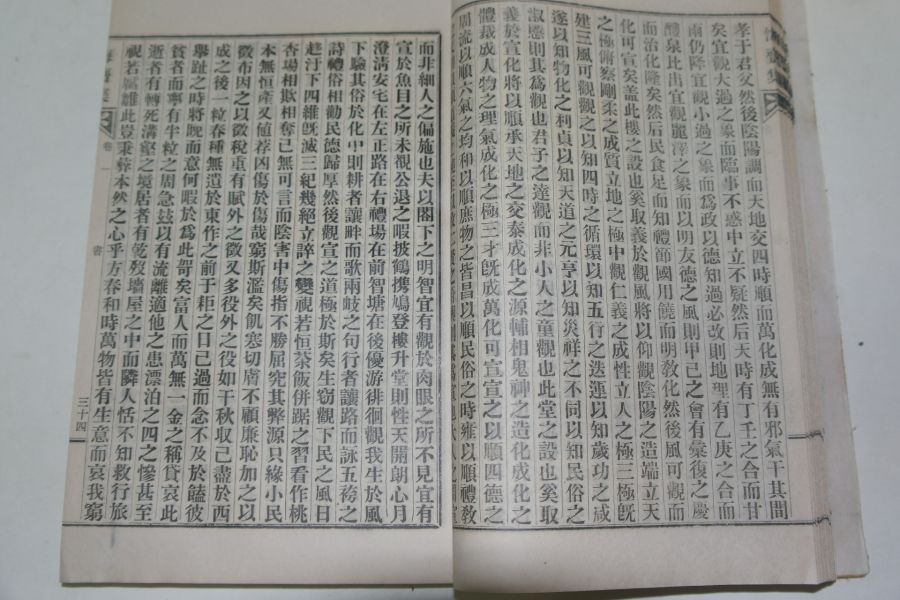 孝于君父然後陰陽調而天地交四時順而萬化成無有邪氣干其間
矣宜觀大過之象而臨事不惑中立不疑然后天時有丁壬之合而甘
雨仍降宜觀小過之象而爲政以德知過必改則地理有乙庚之合而
醴泉比出宜觀麗澤之象而以明友德之風則甲己之會有彙復之慶
而治化隆矣然后民食足而知禮節國用饒而明敎化然後風可觀而
化可宣矣盖此樓之設也奚取義於觀風將以仰觀陰陽之造端立天
之極俯察剛柔之成質立地之極中觀仁義之成性立人之極三極旣
建三風可觀觀之以知四時之循環以知五行之迭運以知歲功之成
遂以知物化之利貞以知天道之元亨以知災祥之不同以知民俗之
淑慝則其爲觀也君子之達觀而非小人之童觀也此堂之設也奚取
義於宣化將以順承天地之交泰成化之源輔相鬼神之造化成化之
體裁成人物之理氣成化之極三才旣成萬化可宣宣之以順四德之
周流以順六氣之均和以順庶物之皆昌以順民俗之時雍以順禮敎
而非細人之偏施也夫以閤下之明智宜有觀於肉眼之所不見宜有
宣於魚目之所未視公退之暇披鶴携鳩登樓升堂則性天開朗心月
澄淸安宅在左正路在右禮場在前智塘在後優游徘徊觀我生於風
下驗其俗於化中則耕者讓畔而歌兩岐之句行者讓路而詠五袴之
詩禮俗相勸民德歸厚然後觀宣之道極於斯矣生窃觀下民之風日
趍汙下四維旣滅三紀幾絕立誶之變視若恒茶飯倂踞之習看作桃
杏場相欺相奪已無可言而陰害中傷指不勝屈究其弊源只緣小民
本無恒產又値荐凶傷於傷哉窮斯濫矣飢寒切膚不顧廉恥加之以
徵布因之以徵稅重有賦外之徵又多役外之役如干秋収已盡於西
成之後一粒春種無遺於東作之前于耟之日已過而念不及於饁彼
舉趾之時將旣而意何暇於爲此哿矣富人而萬無一金之稱貸哀此
貧者而寧有半粒之周急玆以有流離適他之患漂泊之四之慘甚至
逝者有轉死溝壑之境居者有乾歿墻屋之中而隣人恬不知救行旅
視若 此豈秉彛本然之心乎方春和時萬物皆有生意而哀我窮
卷一
書
三十四